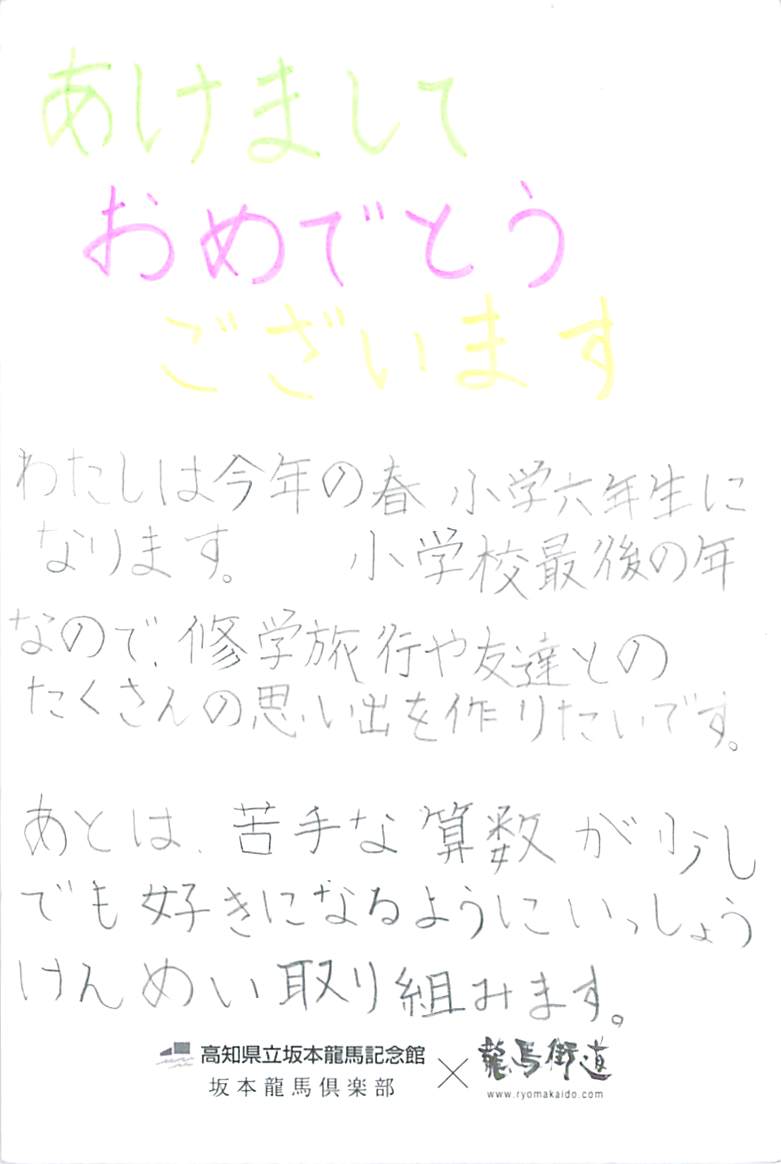 あけまして
おめでとう
ございます
わたしは今年の春 小学六年生に
なります。 小学校最後の年
なので、修学旅行や友達との
たくさんの思い出を作りたいです。
あとは、苦手な算数が少し
でも好きになるようにいっしょう
けんめい取り組みます。
高知県立坂本龍馬記念館
坂本龍馬倶楽部
×
龍馬街道
www.ryomakaido.com